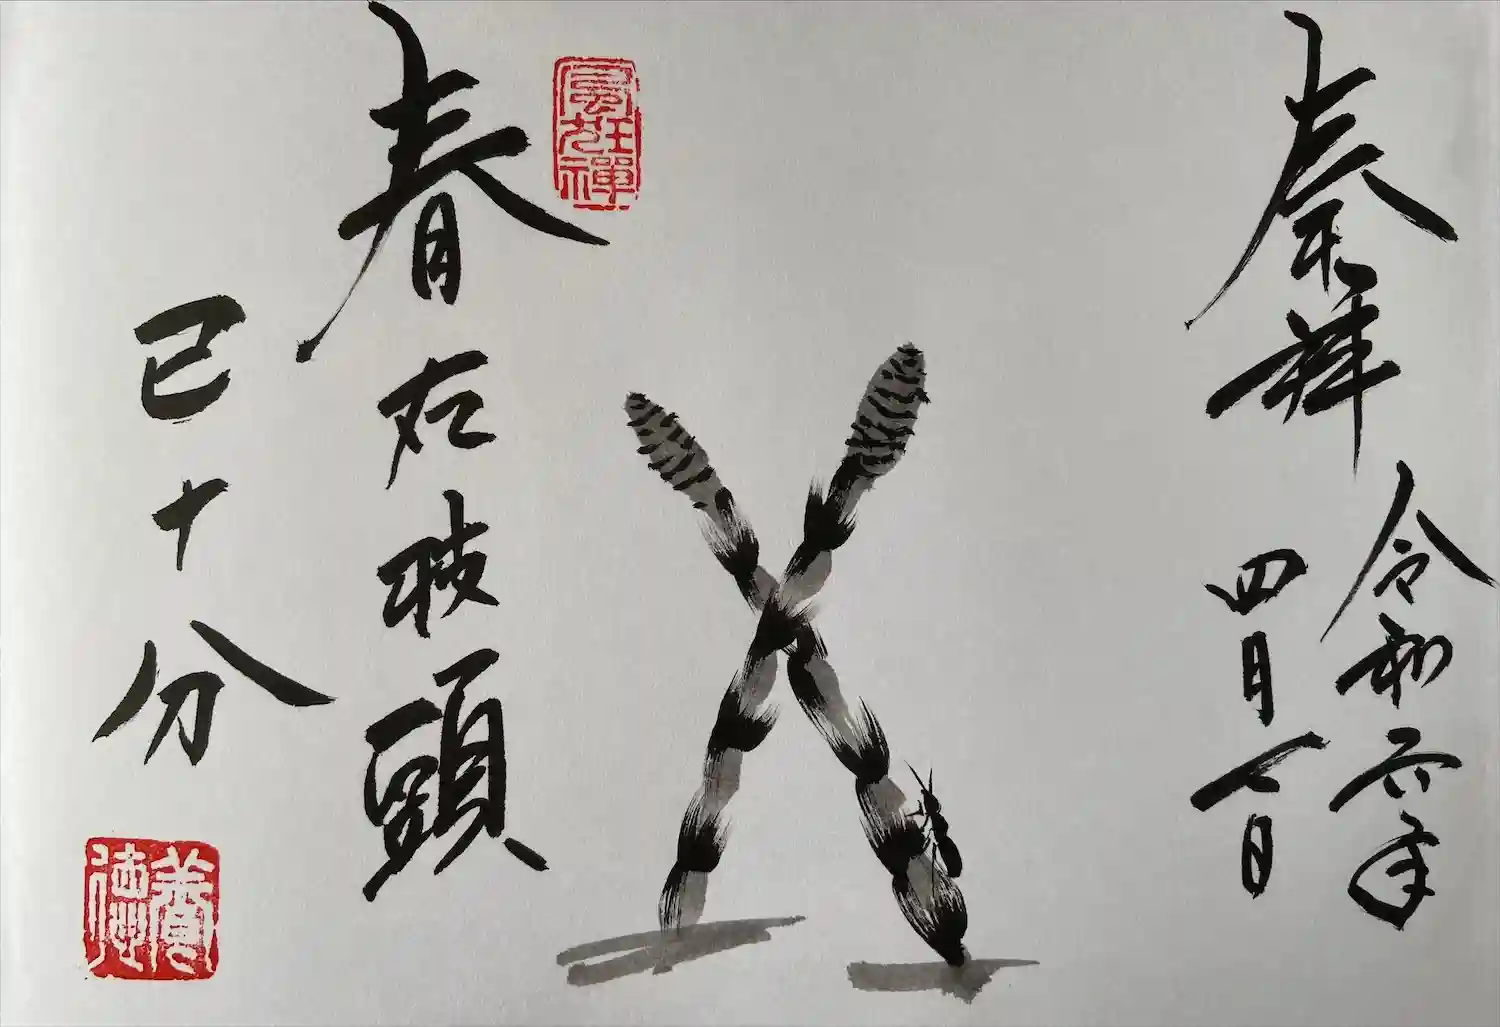 奉拝
令和六年
四月七日
春在枝頭
已十分
養徳